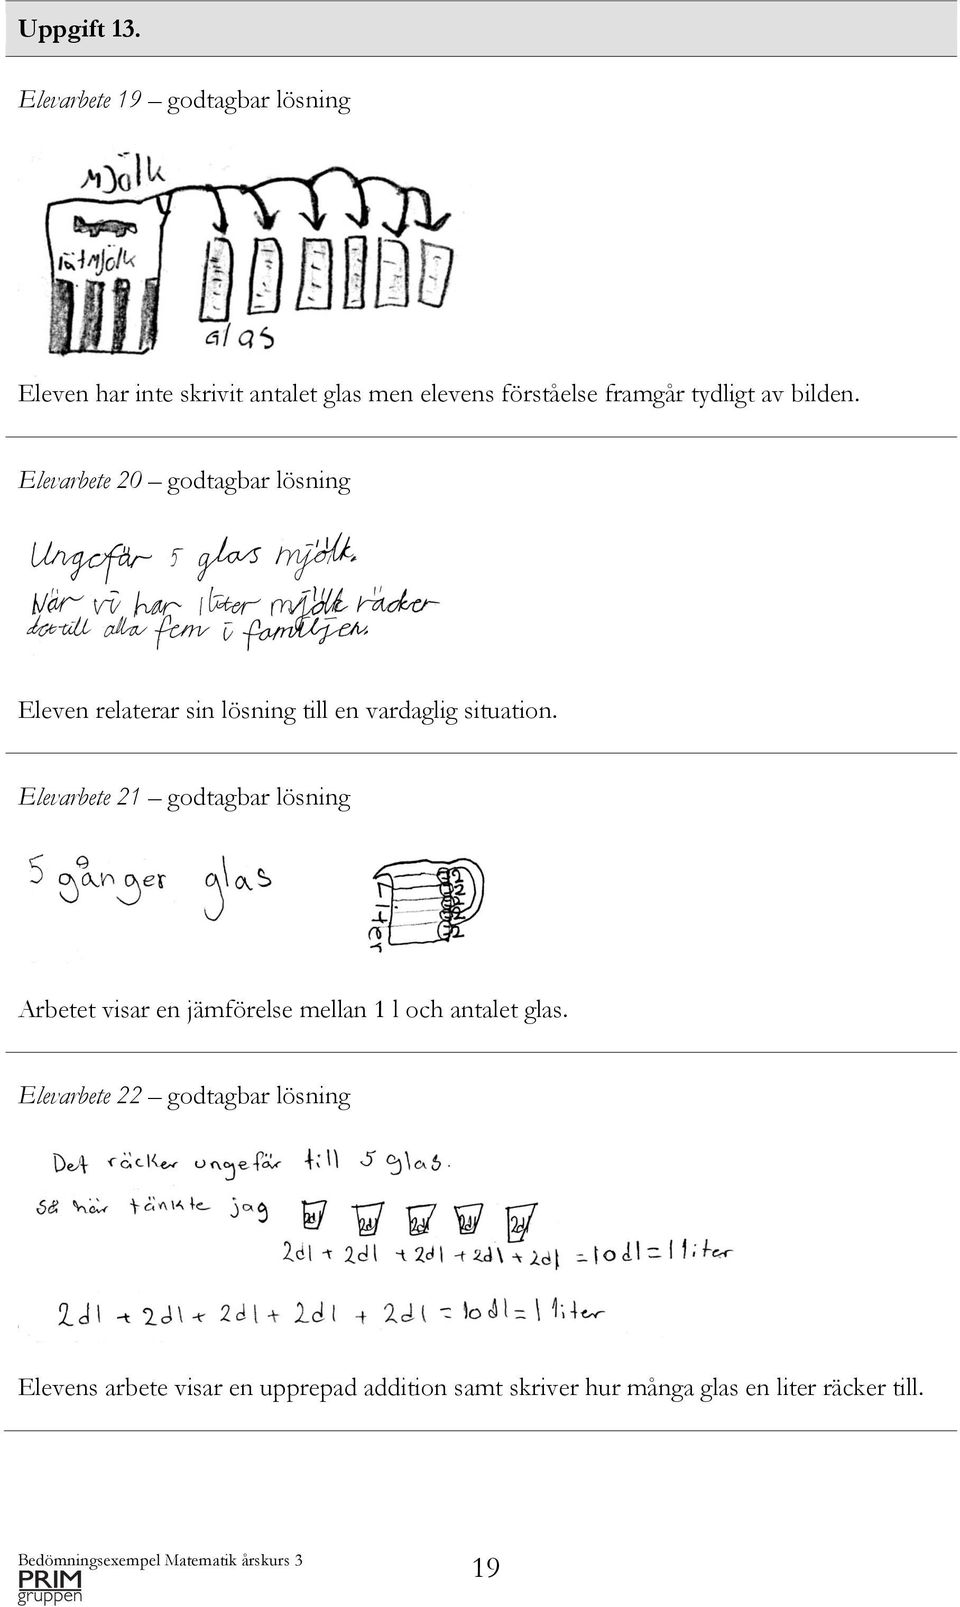 Uppgift 13.
Elevarbete 19 – godtagbar lösning
Mjölk
lätmjölk
Glas
Eleven har inte skrivit antalet glas men elevens förståelse framgår tydligt av bilden.
Elevarbete 20 – godtagbar lösning
Ungefär 5 glas mjölk.
När vi har 1 liter mjölk räcker
det till alla fem i familjen.
Eleven relaterar sin lösning till en vardaglig situation.
Elevarbete 21 – godtagbar lösning
5 gånger glas
Liter
2
2
2
2
2
Arbetet visar en jämförelse mellan 1 l och antalet glas.
Elevarbete 22 – godtagbar lösning
Det räcker ungefär till 5 glas.
Så här tänkte jag 2dl 2dl 2dl 2dl 2dl
2dl + 2dl + 2dl + 2dl + 2dl = 10dl = 1 liter
2dl + 2dl + 2dl + 2dl + 2dl = 10dl = 1 liter
Elevens arbete visar en upprepad addition samt skriver hur många glas en liter räcker till.
Bedömningsexempel Matematik årskurs 3
PRIM
gruppen
19